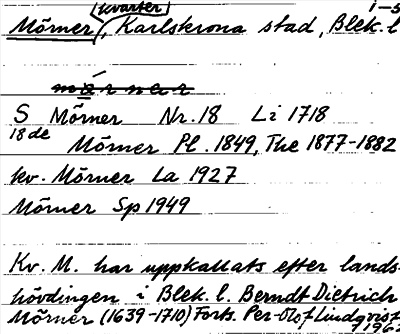 kvarter
Mörner, Karlskrona stad, Blek. l
1-5
má̱rner
S Mörner Nr. 18 Li 1718
18 de Mörner Pl. 1849, The 1877-1882
kv. Mörner La 1927
Mörner Sp 1949
Kv. M. har uppkallats efter lands-
hövdingen i Blek. l. Berndt Dietrich
Mörner (1639-1710) Forts. Per-Olof Lindqvist